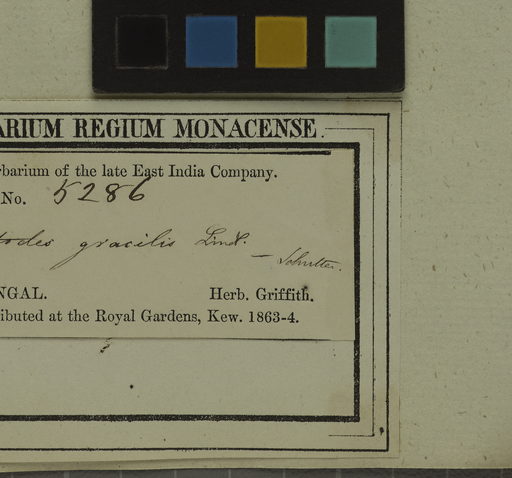 ARIUM REGIUM MONACENSE.
rbarium of the late East India Company.
No. 5286
odes gracilis Lindl.
— Schlechter.
NGAL. Herb. Griffith.
ibuted at the Royal Gardens, Kew. 1863-4.